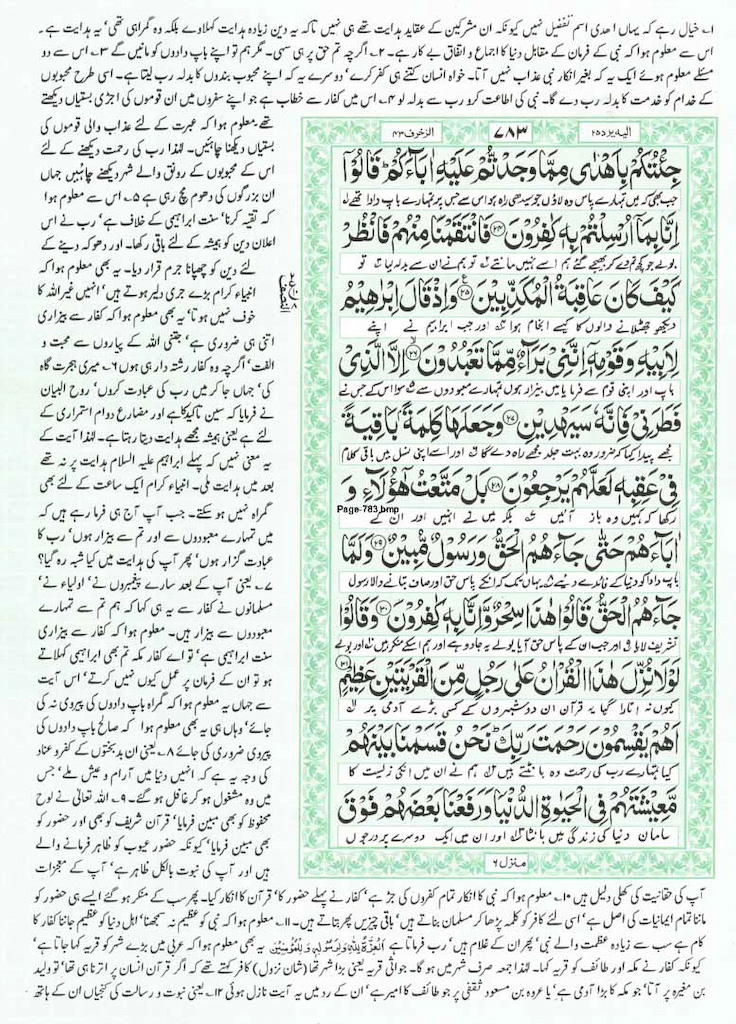 ۱۔ خیال رہے کہ یہاں اھدی اسم تفضیل نہیں کیونکہ ان مشرکین کے عقاید ہدایت تھے ہی نہیں تاکہ یہ دین زیادہ ہدایت کہلاوے بلکہ وہ گمراہی تھی' یہ ہدایت ہے۔
اس سے معلوم ہوا کہ نبی کے فرمان کے مقابل دنیا کا اجماع و اتفاق بے کار ہے۔ ۲۔ اگرچہ تم حق پر ہی سہی۔ مگر ہم تو اپنے باپ دادوں کو مانیں گے ۳۔ اس سے دو
مسئلے معلوم ہوئے ایک یہ کہ بغیر انکار نبی عذاب نہیں آتا۔ خواہ انسان کتنے ہی کفر کرے' دوسرے یہ کہ اپنے محبوب بندوں کا بدلہ رب لیتا ہے۔ اسی طرح محبوبوں
کے خدام کو خدمت کا بدلہ رب دے گا۔ نبی کی اطاعت کرو رب سے بدلہ لو ۴۔ اس میں کفار سے خطاب ہے جو اپنے سفروں میں ان قوموں کی اجڑی بستیاں دیکھتے
الیہ یرد ۲۵
۷۸۳
الزخرف ۴۳
جِئْتُكُمْ بِاَهْدٰى مِمَّا وَجَدْتُّمْ عَلَيْهِ اٰبَآءَكُمْ ؕ قَالُوْۤا
جب بھی کہ میں تمہارے پاس وہ لاؤں جو سیدھی راہ ہو اس سے جس پر تمہارے باپ دادا تھے
اِنَّا بِمَاۤ اُرْسِلْتُمْ بِهٖ كٰفِرُوْنَ ﴿۲۴﴾ فَانْتَقَمْنَا مِنْهُمْ فَانْظُرْ
بولے جو کچھ تم دے کر بھیجے گئے ہم اسے نہیں مانتے تو ہم نے ان سے بدلہ لیا تو
كَيْفَ كَانَ عَاقِبَةُ الْمُكَذِّبِيْنَ ﴿۲۵﴾ وَاِذْ قَالَ اِبْرٰهِيْمُ
دیکھو جھٹلانے والوں کا کیسا انجام ہوا اور جب ابراہیم نے اپنے
لِاَبِيْهِ وَقَوْمِهٖۤ اِنَّنِىْ بَرَآءٌ مِّمَّا تَعْبُدُوْنَ ﴿۲۶﴾ اِلَّا الَّذِىْ
باپ اور اپنی قوم سے فرمایا میں بیزار ہوں تمہارے معبودوں سے سوا اس کے جس نے
فَطَرَنِىْ فَاِنَّهٗ سَيَهْدِيْنِ ﴿۲۷﴾ وَجَعَلَهَا كَلِمَةًۢ بَاقِيَةً
مجھے پیدا کیا کہ ضرور وہ بہت جلد مجھے راہ دے گا اور اسے اپنی نسل میں باقی کلام
فِىْ عَقِبِهٖ لَعَلَّهُمْ يَرْجِعُوْنَ ﴿۲۸﴾ بَلْ مَتَّعْتُ هٰٓؤُلَآءِ وَ
رکھا کہ کہیں وہ باز آئیں بلکہ میں نے انہیں اور ان کے
Page-783.bmp
اٰبَآءَهُمْ حَتّٰى جَآءَهُمُ الْحَقُّ وَرَسُوْلٌ مُّبِيْنٌ ﴿۲۹﴾ وَلَمَّا
باپ دادا کو دنیا کے فائدے دیئے یہاں تک کہ انکے پاس حق اور صاف بتانے والا رسول
جَآءَهُمُ الْحَقُّ قَالُوْا هٰذَا سِحْرٌ وَّاِنَّا بِهٖ كٰفِرُوْنَ ﴿۳۰﴾ وَقَالُوْا
تشریف لایا اور جب ان کے پاس حق آیا بولے یہ جادو ہے اور ہم اسکے منکر ہیں اور بولے
لَوْلَا نُزِّلَ هٰذَا الْقُرْاٰنُ عَلٰى رَجُلٍ مِّنَ الْقَرْيَتَيْنِ عَظِيْمٍ ﴿۳۱﴾
کیوں نہ اتارا گیا یہ قرآن ان دو شہروں کے کسی بڑے آدمی پر
اَهُمْ يَقْسِمُوْنَ رَحْمَتَ رَبِّكَ ؕ نَحْنُ قَسَمْنَا بَيْنَهُمْ
کیا تمہارے رب کی رحمت وہ بانٹتے ہیں ہم نے ان میں انکی زیست کا
مَّعِيْشَتَهُمْ فِى الْحَيٰوةِ الدُّنْيَا وَرَفَعْنَا بَعْضَهُمْ فَوْقَ
سامان دنیا کی زندگی میں بانٹا اور ان میں ایک دوسرے پر درجوں
منزل ۶
النصف
تھے۔ معلوم ہوا کہ عبرت کے لئے عذاب والی قوموں کی
بستیاں دیکھنا چاہئیں۔ لہٰذا رب کی رحمت دیکھنے کے لئے
اس کے محبوبوں کے رونق والے شہر دیکھنے چاہئیں جہاں
ان بزرگوں کی دھوم مچ رہی ہے ۵۔ اس سے معلوم ہوا
کہ تقیہ کرنا' سنت ابراہیمی کے خلاف ہے' رب نے اس
اعلان دین کو ہمیشہ کے لئے باقی رکھا۔ اور دھوکہ دینے کے
لئے دین کو چھپانا جرم قرار دیا۔ یہ بھی معلوم ہوا کہ
انبیاء کرام بڑے جری دلیر ہوتے ہیں' انہیں غیراللہ کا
خوف نہیں ہوتا' یہ بھی معلوم ہوا کہ کفار سے بیزاری
اتنی ہی ضروری ہے' جتنی اللہ کے پیاروں سے محبت و
الفت' اگرچہ وہ کفار رشتہ دار ہی ہوں ۶۔ میری ہجرت گاہ
کی' جہاں جا کر میں رب کی عبادت کروں' روح البیان
نے فرمایا کہ سین تاکید کا ہے اور مضارع دوام استمراری کے
لئے ہے یعنی ہمیشہ مجھے ہدایت دیتا رہتا ہے۔ لہٰذا آیت کے
یہ معنی نہیں کہ پہلے ابراہیم علیہ السلام ہدایت پر نہ تھے
بعد میں ہدایت ملی۔ انبیاء کرام ایک ساعت کے لئے بھی
گمراہ نہیں ہو سکتے۔ جب آپ آج ہی فرما رہے ہیں کہ
میں تمہارے معبودوں سے اور تم سے بیزار ہوں' رب کا
عبادت گزار ہوں' پھر آپ کی ہدایت میں کیا شبہ رہ گیا؟
۷۔ یعنی آپ کے بعد سارے پیغمبروں نے' اولیاء نے'
مسلمانوں نے کفار سے یہ ہی کہا کہ ہم تم سے تمہارے
معبودوں سے بیزار ہیں۔ معلوم ہوا کہ کفار سے بیزاری
سنت ابراہیمی ہے' تو اے کفار مکہ تم بھی ابراہیمی کہلاتے
ہو تو ان کے فرمان پر عمل کیوں نہیں کرتے' اس آیت
سے جہاں یہ معلوم ہوا کہ گمراہ باپ دادوں کی پیروی نہ کی
جائے' وہاں ہی یہ بھی معلوم ہوا کہ صالح باپ دادوں کی
پیروی ضروری کی جائے ۸۔ یعنی ان بدبختوں کے کفر و عناد
کی وجہ یہ ہے کہ انہیں دنیا میں آرام و عیش ملے' جس
میں وہ مشغول ہو کر غافل ہو گئے۔ ۹۔ اللہ تعالٰی نے لوح
محفوظ کو بھی مبین فرمایا' قرآن شریف کو بھی اور حضور کو
بھی مبین فرمایا' کیونکہ حضور عیوب کو ظاہر فرمانے والے
ہیں اور آپ کی نبوت بالکل ظاہر ہے' آپ کے معجزات
آپ کی حقانیت کی کھلی دلیل ہیں ۱۰۔ معلوم ہوا کہ نبی کا انکار تمام کفروں کی جڑ ہے' کفار نے پہلے حضور کا' قرآن کا انکار کیا۔ پھر سب کے منکر ہو گئے ایسے ہی حضور کو
ماننا تمام ایمانیات کی اصل ہے' اسی لئے کافر کو کلمہ پڑھا کر مسلمان بناتے ہیں' باقی چیزیں پھر بتاتے ہیں۔ ۱۱۔ معلوم ہوا کہ نبی کو عظیم نہ سمجھنا' اہل دنیا کو عظیم جاننا کفار کا
کام ہے سب سے زیادہ عظمت والے نبی' پھر ان کے غلام ہیں' رب فرماتا ہے اَلْعِزَّةُ لِلّٰهِ وَلِرَسُوْلِهٖ وَلِلْمُؤْمِنِيْنَ یہ بھی معلوم ہوا کہ عربی میں بڑے شہر کو قریہ کہا جاتا ہے'
کیونکہ کفار نے مکہ اور طائف کو قریہ کہا۔ لہٰذا جمعہ صرف شہر میں ہو گا۔ جواثی قریہ یعنی بڑا شہر تھا (شان نزول) کافر کہتے تھے کہ اگر قرآن انسان پر اترنا ہی تھا' تو ولید
بن مغیرہ پر آتا' جو مکہ کا بڑا آدمی ہے' یا عروہ بن مسعود ثقفی پر جو طائف کا امیر ہے' ان کے رد میں یہ آیت نازل ہوئی ۱۲۔ یعنی نبوت و رسالت کی کنجیاں ان کے ہاتھ